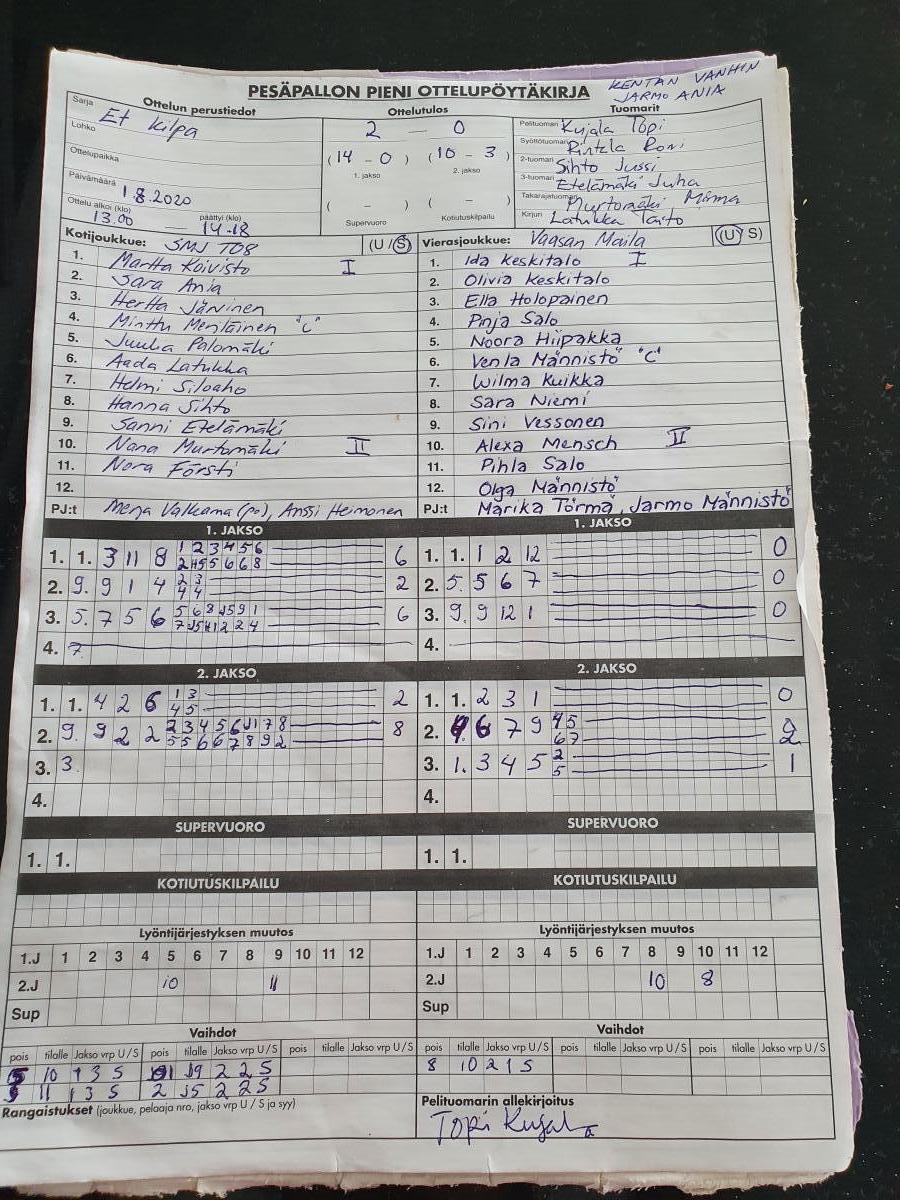 PESÄPALLON PIENI OTTELUPÖYTÄKIRJA
KENTÄN VANHIN
JARMO ANIA
Sarja Ottelun perustiedot
Et kilpa
Lohko
Ottelupaikka
Päivämäärä 1.8.2020
Ottelu alkoi (klo) päättyi (klo)
13.00 — 14.18
Ottelutulos
2 — 0
(14 - 0) (10 - 3)
1. jakso 2. jakso
( - ) ( - )
Supervuoro Kotiutuskilpailu
Tuomarit
Pelituomari Kujala Topi
Syöttötuomari Roni
2-tuomari Sihto Jussi
3-tuomari Etelämäki Juha
Takarajatuomari Murtomäki Minna
Kirjuri Latukka Taito
Kotijoukkue: SMJ T08 (U / S)
1. Martta Koivisto I
2. Sara Ania
3. Hertta Järvinen
4. Minttu Meriläinen "C"
5. Juulia Palomäki
6. Aada Latukka
7. Helmi Siloaho
8. Hanna Sihto
9. Sanni Etelämäki
10. Nana Murtomäki II
11. Nora Försti
12.
PJ:t Merja Valkama (po), Anssi Heimonen
Vierasjoukkue: Vaasan Maila (U / S)
1. Ida Keskitalo I
2. Olivia Keskitalo
3. Ella Holopainen
4. Pinja Salo
5. Noora Hiipakka
6. Venla Männistö "C"
7. Wilma Kuikka
8. Sara Niemi
9. Sini Vessonen
10. Alexa Mensch II
11. Pihla Salo
12. Olga Männistö
PJ:t Marika Törmä, Jarmo Männistö
1. JAKSO
1. 1. 3 11 8 1 2 3 4 5 6 6
2 4 5 5 6 6 8
2. 9. 9 1 4 2 3 2
4 4
3. 5. 7 5 6 6
4. 7.
1. JAKSO
1. 1. 1 2 12 0
2. 5. 5 6 7 0
3. 9. 9 12 1 0
4.
2. JAKSO
1. 1. 4 2 6 1 3 2
4 5
2. 9. 9 2 2 2 3 4 5 6 J1 7 8 8
5 5 6 6 7 8 9 2
3. 3.
4.
2. JAKSO
1. 1. 2 3 1 0
2. 6 7 9 4 5 2
6 7
3. 1. 3 4 5 2 1
5
4.
SUPERVUORO
1. 1.
SUPERVUORO
1. 1.
KOTIUTUSKILPAILU
KOTIUTUSKILPAILU
Lyöntijärjestyksen muutos
1.J 1 2 3 4 5 6 7 8 9 10 11 12
2.J 10 11
Sup
Lyöntijärjestyksen muutos
1.J 1 2 3 4 5 6 7 8 9 10 11 12
2.J 10 8
Sup
Vaihdot
pois tilalle Jakso vrp U / S pois tilalle Jakso vrp U / S pois tilalle Jakso vrp U / S
5 10 1 3 S J9 2 2 S
9 11 1 3 S 2 J5 2 2 S
Rangaistukset (joukkue, pelaaja nro, jakso vrp U / S ja syy)
Vaihdot
pois tilalle Jakso vrp U / S pois tilalle Jakso vrp U / S pois tilalle Jakso vrp U / S
8 10 2 1 S
Pelituomarin allekirjoitus
Topi Kujala